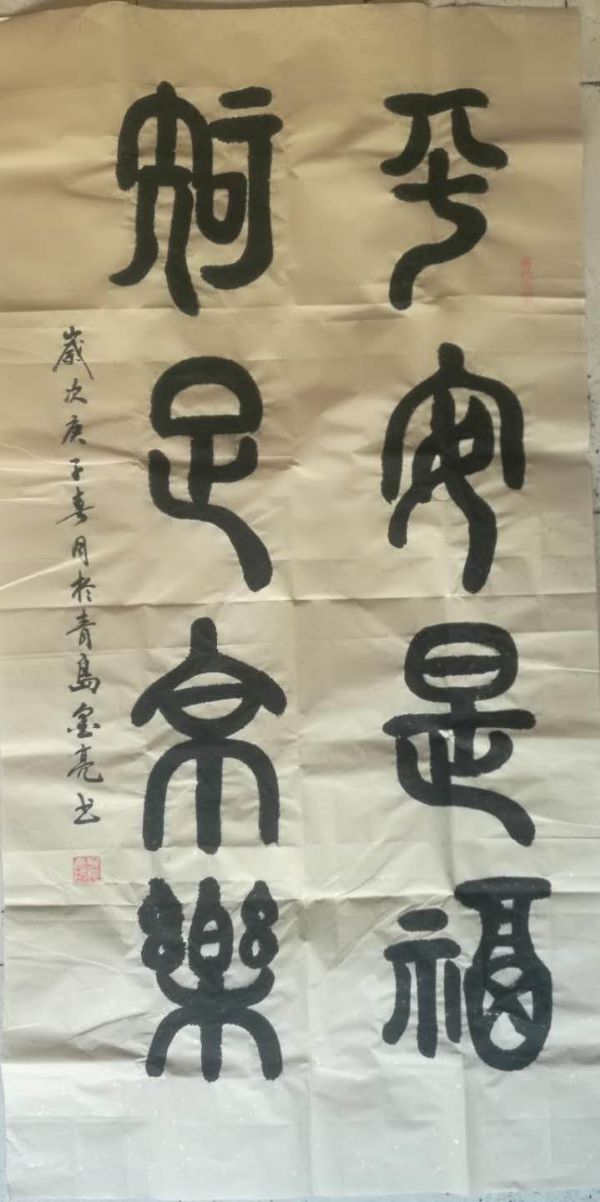 平安是福
知足常樂
歲次庚子春月於青島金亮书